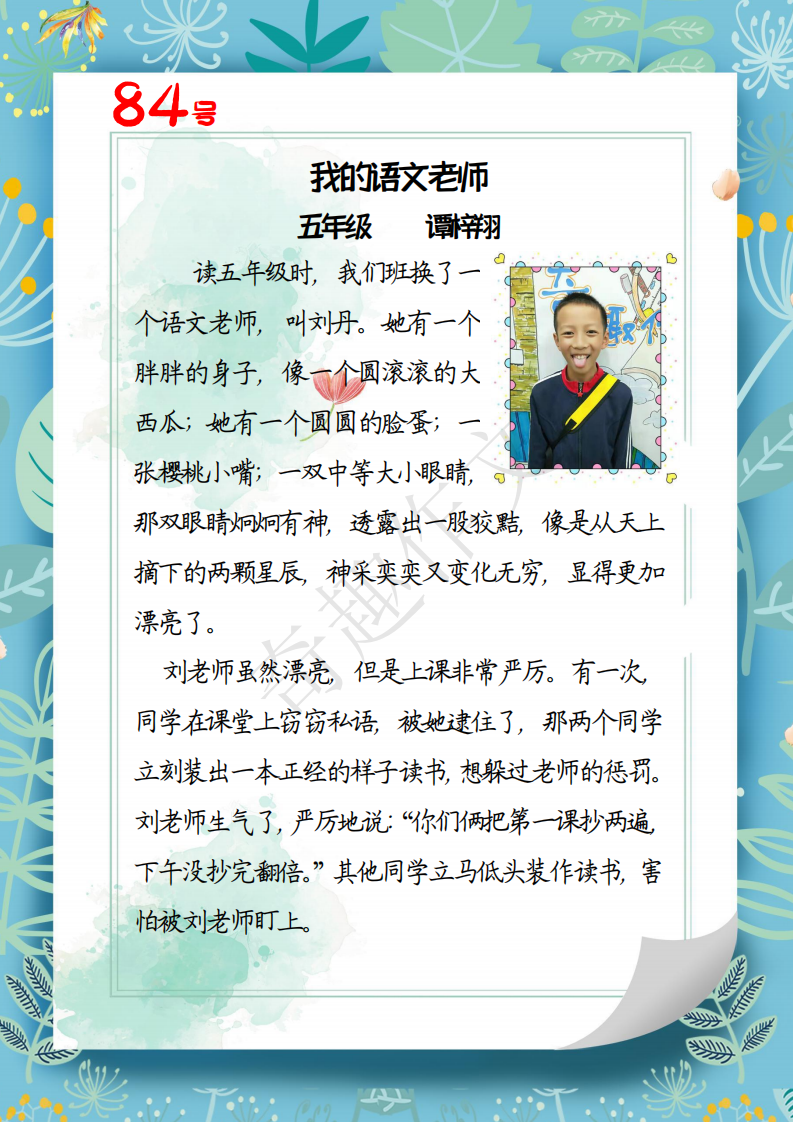 84号
我的语文老师
五年级 谭梓翔
读五年级时，我们班换了一
个语文老师，叫刘丹。她有一个
胖胖的身子，像一个圆滚滚的大
西瓜；她有一个圆圆的脸蛋；一
张樱桃小嘴；一双中等大小眼睛，
那双眼睛炯炯有神，透露出一股狡黠，像是从天上
摘下的两颗星辰，神采奕奕又变化无穷，显得更加
漂亮了。
刘老师虽然漂亮，但是上课非常严厉。有一次，
同学在课堂上窃窃私语，被她逮住了，那两个同学
立刻装出一本正经的样子读书，想躲过老师的惩罚。
刘老师生气了，严厉地说：“你们俩把第一课抄两遍，
下午没抄完翻倍。”其他同学立马低头装作读书，害
怕被刘老师盯上。
奇趣作文